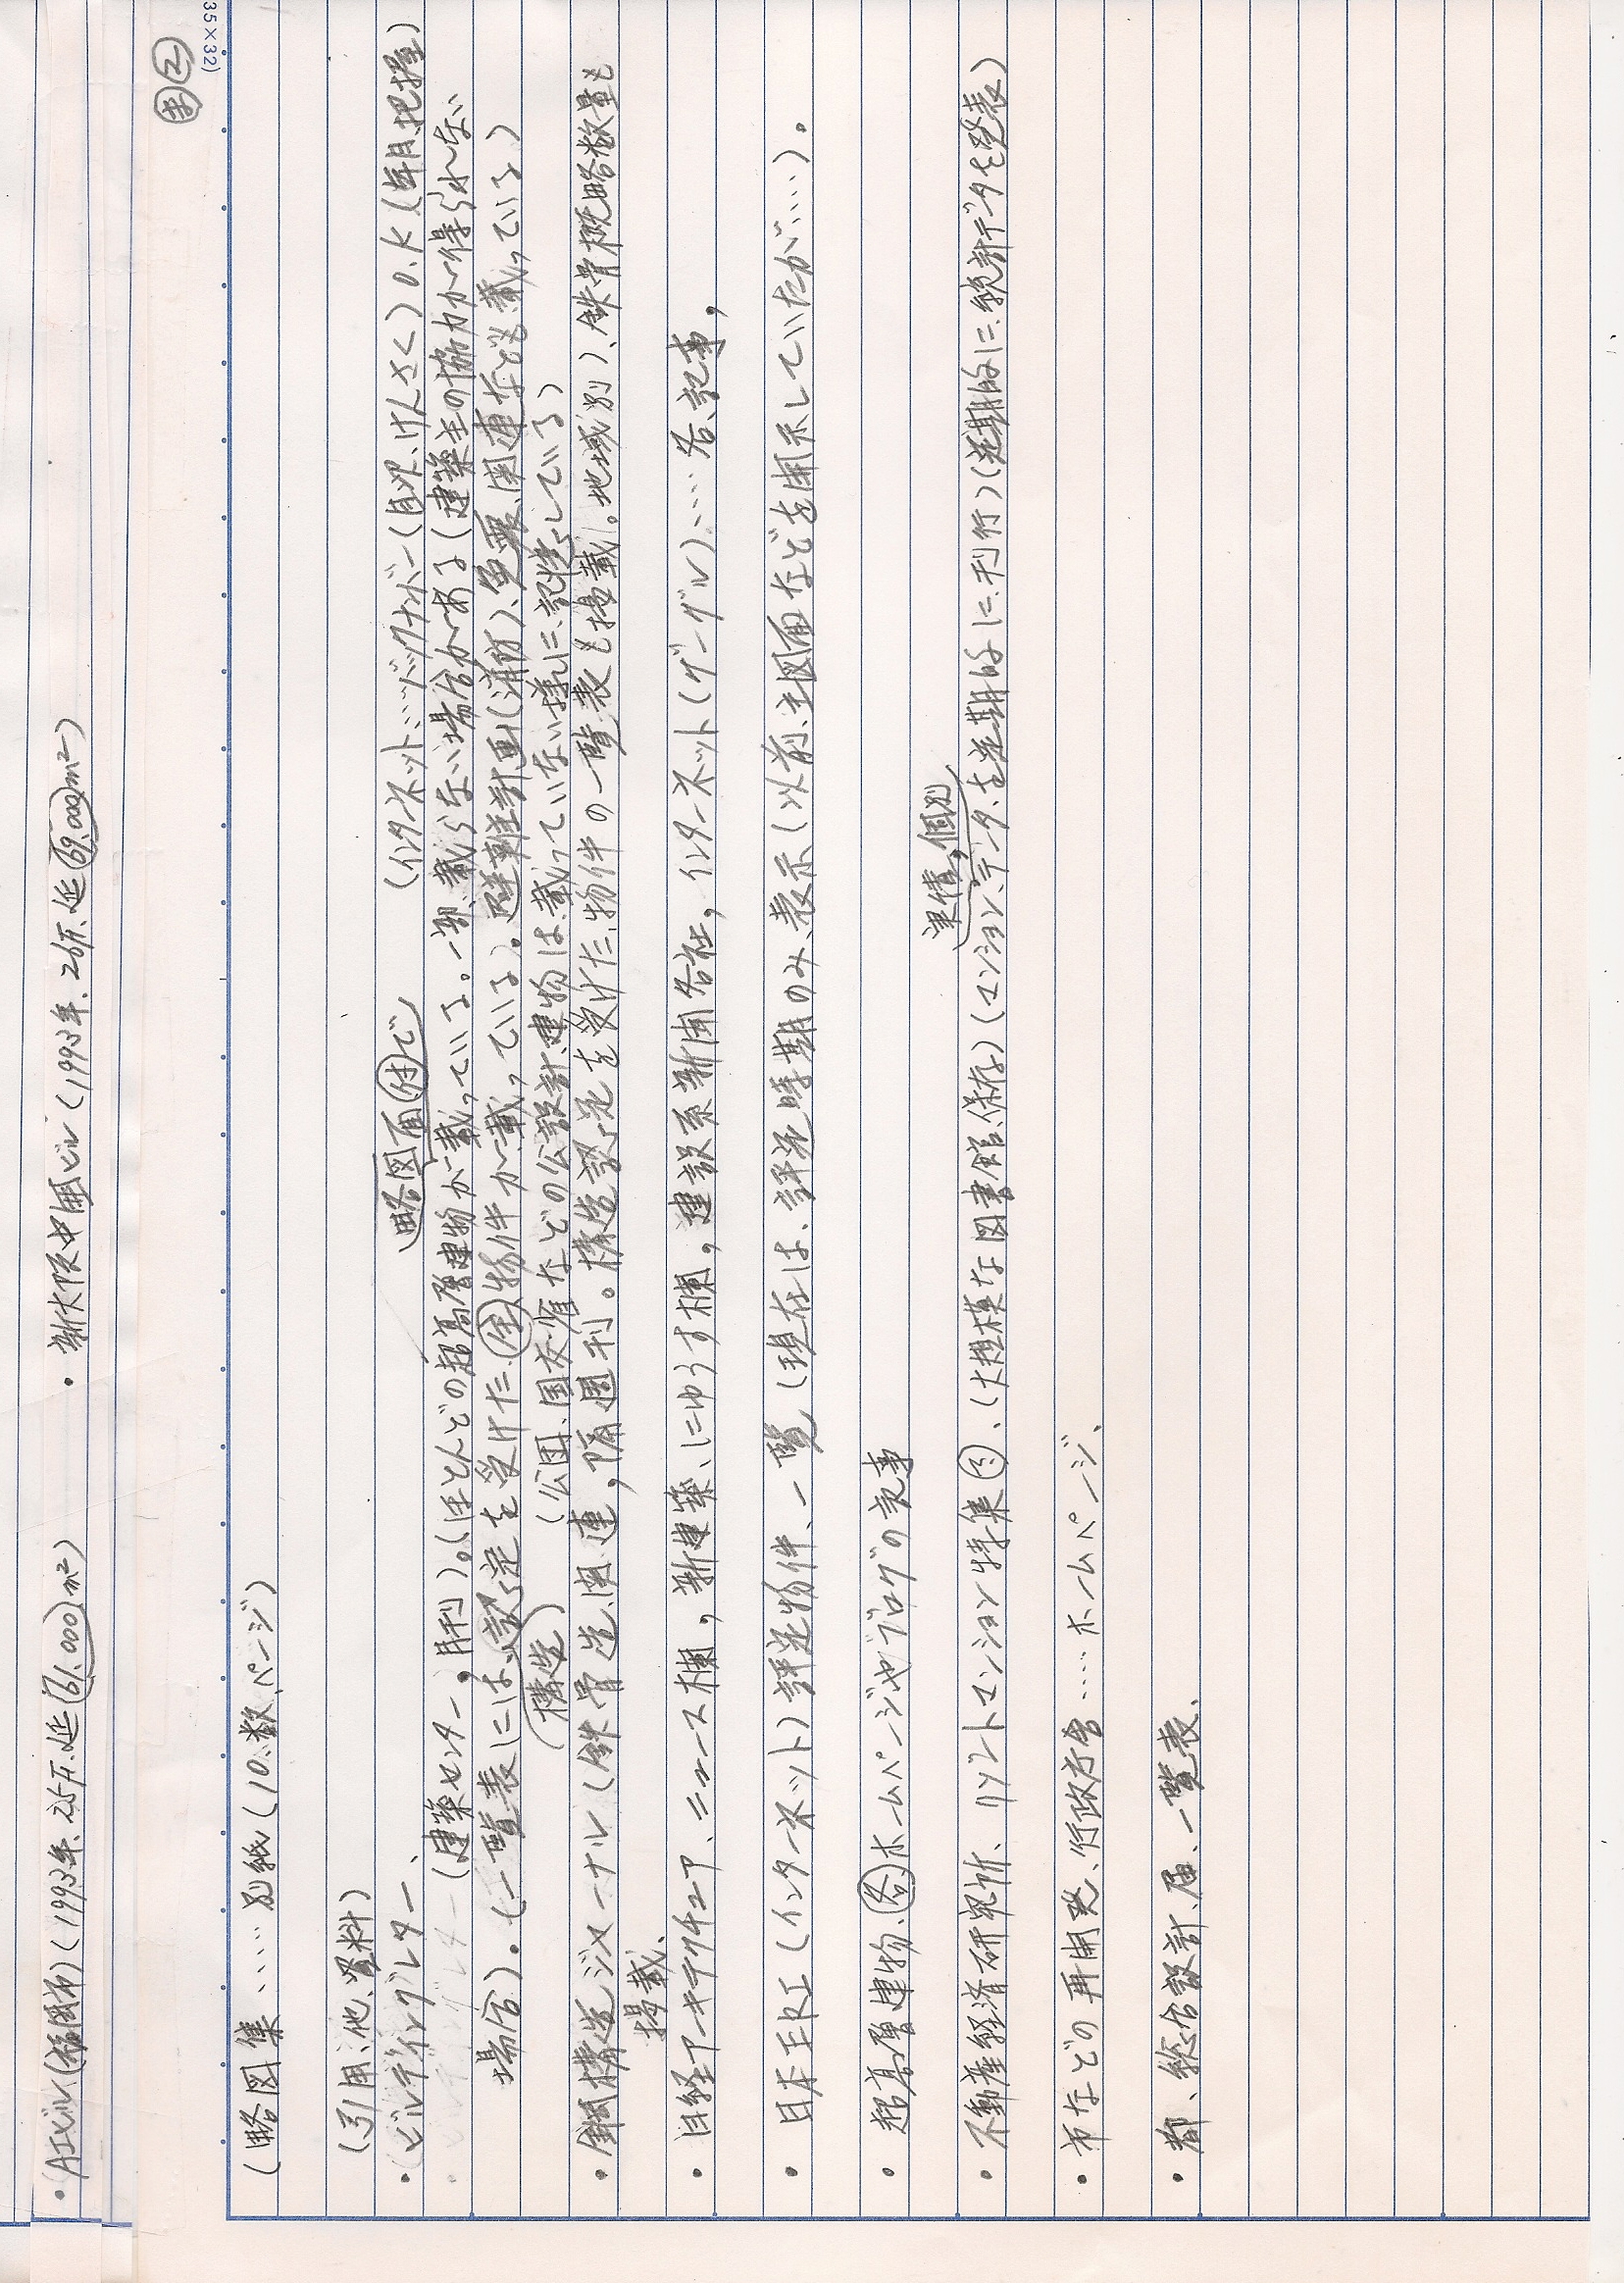 ・AIビル(福岡市)(1993年、25F、延61,000m²)　・新大阪中央ビル(1993年、26F、延69,000m²)
35×32)
②
(略図集……別紙(10数ページ)
(引用、他、資料)
・ビルディングレター、　略図面付で　(インターネット…バックナンバー(目次、けんさく)O.K(年月、把握)
(建築センター、月刊)。(ほとんどの超高層建物が載っている。一部、載らない場合がある(建築主の協力が得られない
場合)。(一覧表には、認定を受けた、全物件が載っている)。避難計画(消防)、免震、関連なども載っている)
(構造)　(公団、国交省などの公設計、建物は、載っていない様に、記憶している)
・鋼構造ジャーナル(鉄骨造、関連、隔週刊。構造認定を受けた、物件の一覧表も掲載。地域別)、鉄骨概略数量も
掲載、
・日経アーキテクチュア、ニュース欄、新建築、にゅうす欄、建設系新聞各社、インターネット(グーグル)……各、記事、
・日本ERI(インターネット)評定物件、一覧(現在は、評定時期のみ、表示(以前、主図面などを開示していたが……)。
・超高層建物、各ホームページやブログの記事
実績、個別
・不動産経済研究所、リゾートマンション特集号、(大規模な図書館、保存)(マンション、データ、を定期的に、刊行)(定期的に、統計データを発表)
・市などの再開発、行政庁舎……ホームページ、
・都、総合設計、届、一覧表、